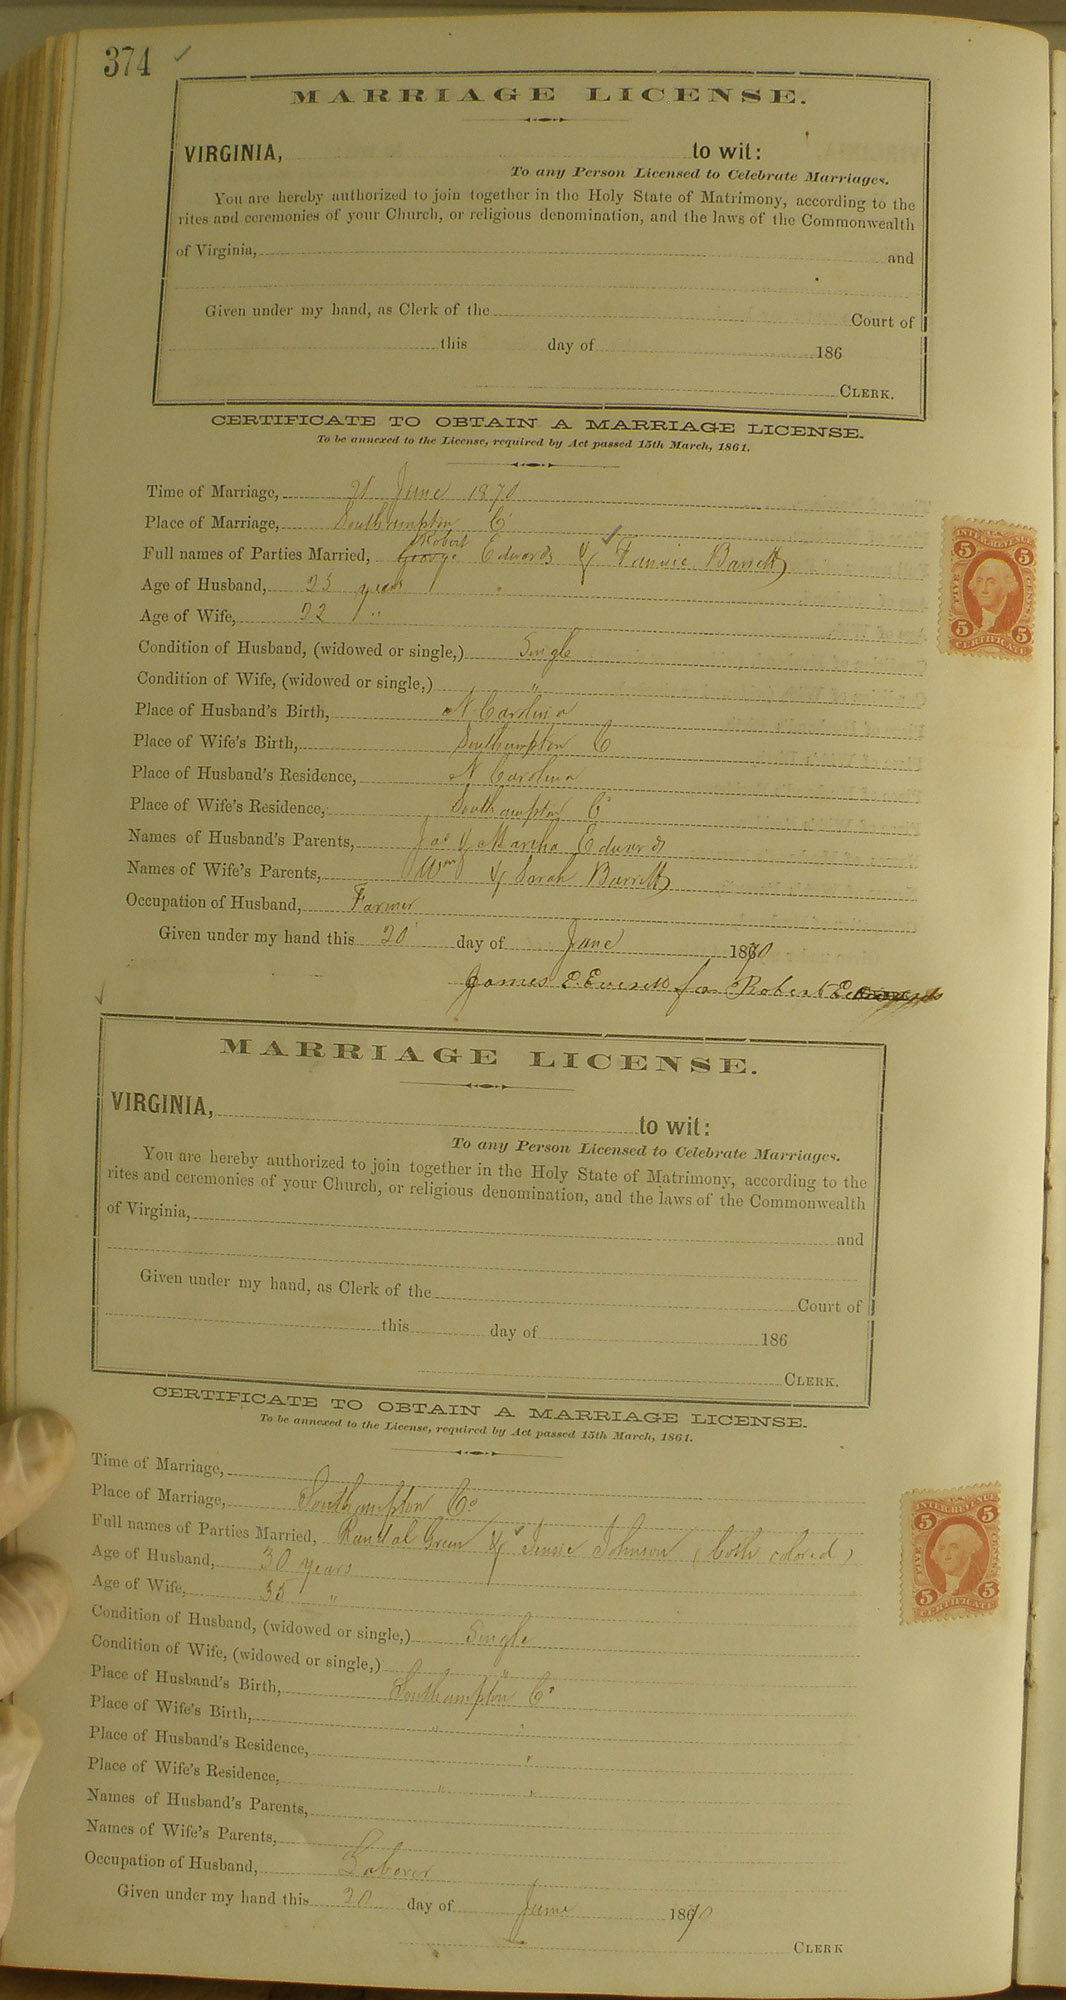 374
MARRIAGE LICENSE.
VIRGINIA, to wit:
To any Person Licensed to Celebrate Marriages.
You are hereby authorized to join together in the Holy State of Matrimony, according to the
rites and ceremonies of your Church, or religious denomination, and the laws of the Commonwealth
of Virginia, and
Given under my hand, as Clerk of the Court of
this day of 186
CLERK.
CERTIFICATE TO OBTAIN A MARRIAGE LICENSE.
To be annexed to the License, required by Act passed 15th March, 1861.
Time of Marriage, 21 June 1870
Place of Marriage, Southampton C
Robert
Full names of Parties Married, George Edwards & Fannie Barrett
Age of Husband, 23 years
Age of Wife, 22 "
Condition of Husband, (widowed or single,) Single
Condition of Wife, (widowed or single,) "
Place of Husband's Birth, N Carolina
Place of Wife's Birth, Southampton C
Place of Husband's Residence, N Carolina
Place of Wife's Residence, Southampton Co
Names of Husband's Parents, Jas & Martha Edwards
Names of Wife's Parents, Wm & Sarah Barrett
Occupation of Husband, Farmer
Given under my hand this 20 day of June 1870
James E. Everett for Robert
INTER. REVENUE
5 5
FIVE CENTS
5 5
CERTIFICATE
MARRIAGE LICENSE.
VIRGINIA, to wit:
To any Person Licensed to Celebrate Marriages.
You are hereby authorized to join together in the Holy State of Matrimony, according to the
rites and ceremonies of your Church, or religious denomination, and the laws of the Commonwealth
of Virginia, and
Given under my hand, as Clerk of the Court of
this day of 186
CLERK.
CERTIFICATE TO OBTAIN A MARRIAGE LICENSE.
To be annexed to the License, required by Act passed 15th March, 1861.
Time of Marriage,
Place of Marriage, Southampton Co
Full names of Parties Married, Randal Green & Jennie Johnson (both colored)
Age of Husband, 30 years
Age of Wife, 35 "
Condition of Husband, (widowed or single,) Single
Condition of Wife, (widowed or single,) "
Place of Husband's Birth, Southampton Co
Place of Wife's Birth, " "
Place of Husband's Residence, "
Place of Wife's Residence, " "
Names of Husband's Parents,
Names of Wife's Parents,
Occupation of Husband, Laborer
Given under my hand this 20 day of June 1870
CLERK
U.S. INTER. REVENUE
5 5
FIVE CENTS
5 5
CERTIFICATE